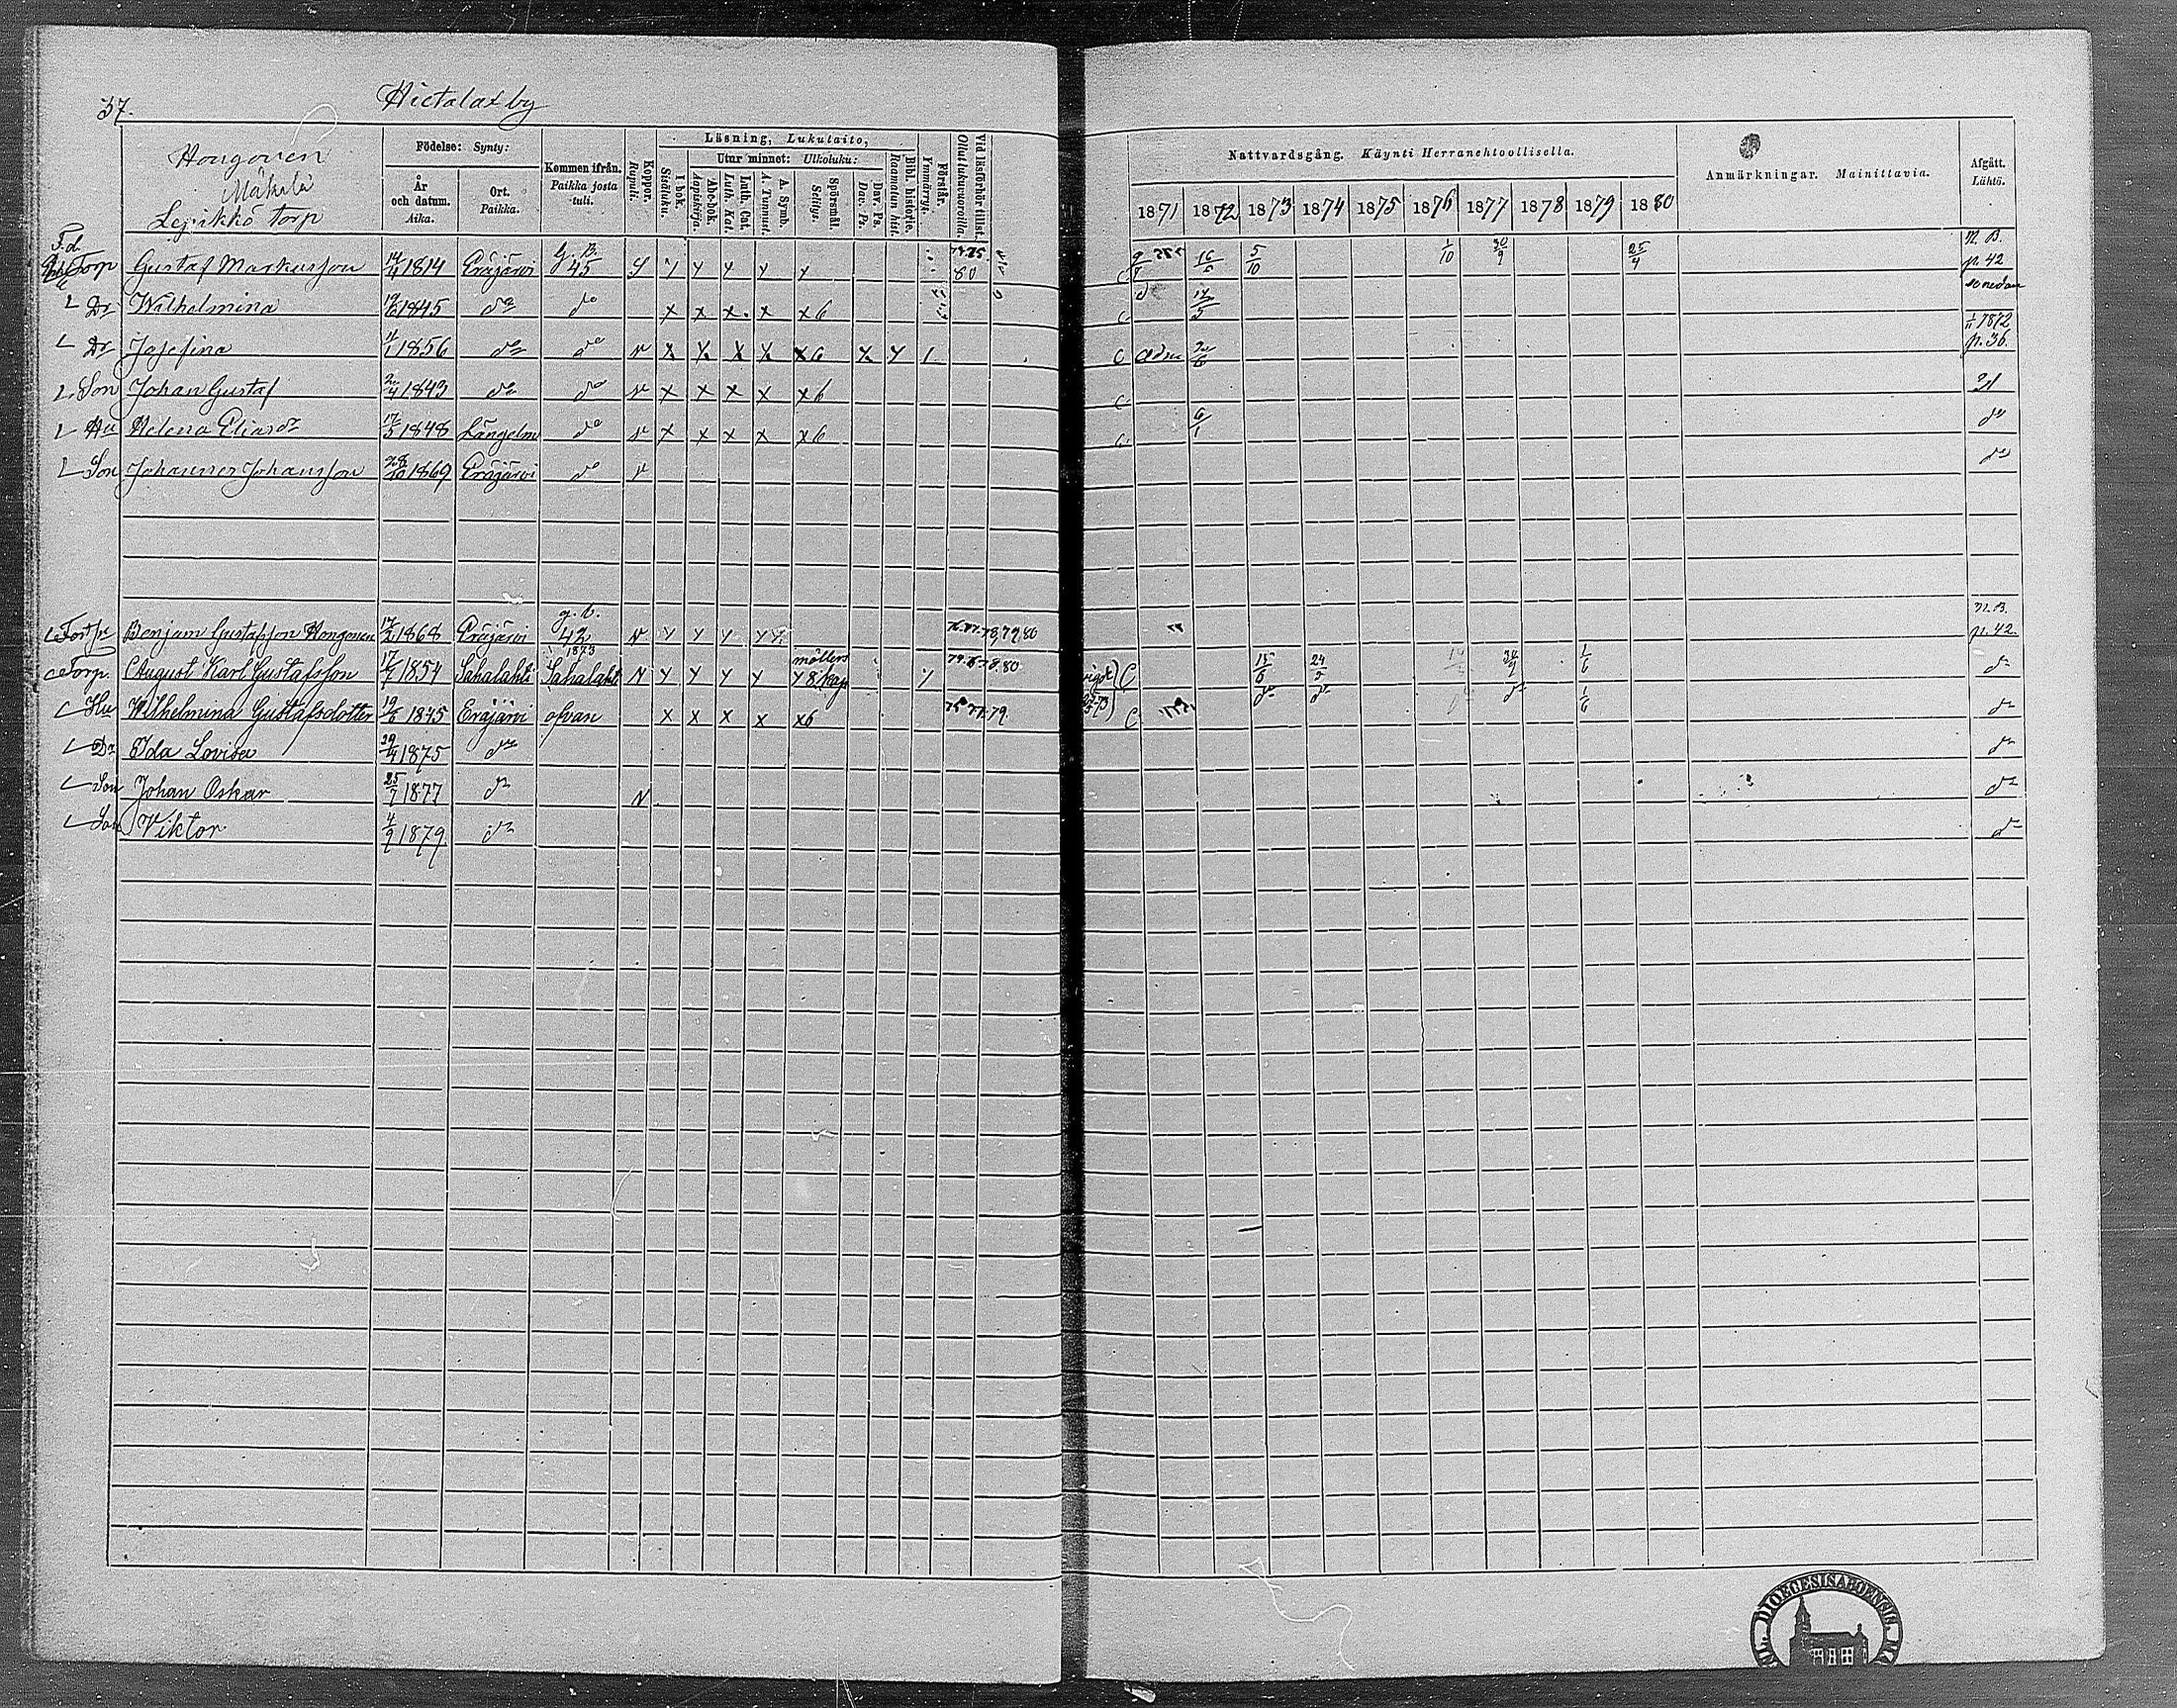 37.
Hietalax by
Hongonen
Mäkelä
Lepikkö Torp
Födelse: Synty:
År och datum. Aika.
Ort. Paikka.
Kommen ifrån. Paikka josta tuli.
Koppor. Rupuli.
Läsning, Lukutaito,
I bok. Sisäluku.
Utur minnet: Ulkoluku:
Abc-bok. Aapiskirja.
Luth. Cat. Luth. Kat.
A. Symb. A. Tunnust.
Spörsmål. Selitys.
Dav. Ps. Dav. Ps.
Bibl. historie. Raamatun hist.
Förstår. Ymmärryt.
Vid läsförhör tillst. Ollut lukuvuoroilla.
Nattvardsgång. Käynti Herranehtoollisella.
1871 1872 1873 1874 1875 1876 1877 1878 1879 1880
Anmärkningar. Mainittavia.
Afgått. Lähtö.
F.d. Torp Gustaf Markusson 14/4 1814 Eräjärvi G. B. 45 80 16/6 5/10 1/10 30/9 25/4 N. B. p. 42
Dr Wilhelmina 19/6 1845 do do x x x x x6 14/5 se nedan
Dr Josefina 4/1 1856 do do v x x x x x6 x y 1 C adm 1/11 1872 p. 36.
Son Johan Gustaf 2/4 1843 do do v x x x x x6 C
Hu Helena Eliasdr 17/5 1848 Längelm do v x x x x x6 C 6/1 do
Son Johannes Johansson 28/10 1869 Eräjärvi do v do
Benjam Gustafsson Hongonen 17/2 1868 Eräjärvi g. b. 42 v y y y y y. 78,79.80 N. B. p. 42.
Torp. August Karl Gustafsson 17/7 1854 Sahalahti Sahalahti 1873 N y y y y möllers y 8 kap y C 15/6 24/5 30/9 1/6 do
Hu Wilhelmina Gustafsdotter 19/6 1845 Eräjärvi ofvan x x x x x6 77.79. C do do do 1/6 do
Dr Ida Lovisa 29/4 1875 do do
Son Johan Oskar 25/7 1877 do N do
Son Viktor 4/9 1879 do do
DIOECESIS ABOENSIS.